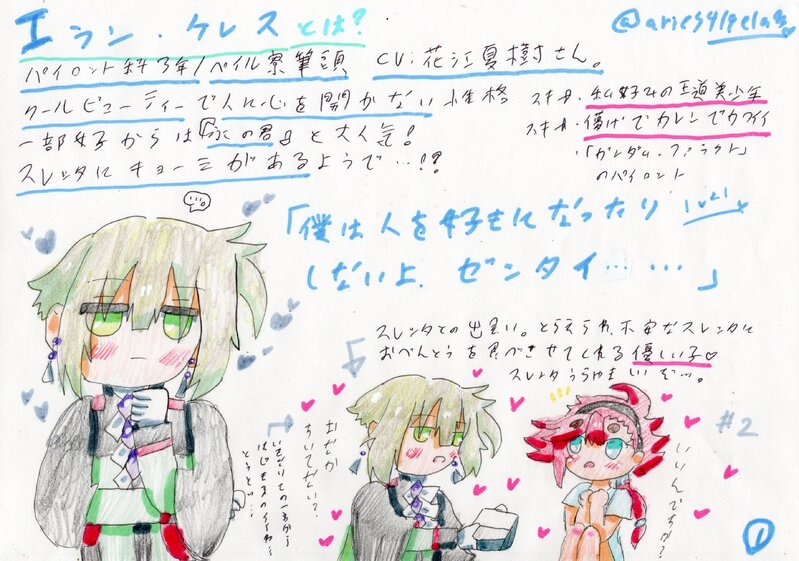 エラン・ケレスとは?
@aries41pela
パイロット科3年/ペイル寮筆頭 CV:花江夏樹さん。
クールビューティーで人に心を開かない性格
一部女子からは『氷の君』と大人気!
スレッタにキョーミがあるようで…!?
スキ①. 私好みの王道美少年
スキ②. 儚げでカレンでカワイイ
「ガンダム・ファラクト」
のパイロット
「僕は人を好きになったり
しないよ、ゼッタイ……」
スレッタとの出会い。とらえられ、不安なスレッタに
おべんとうを食べさせてくれる優しい子
スレッタうらやましいぞ…。
#2
おなか
すいてない?
いいんですか?
1